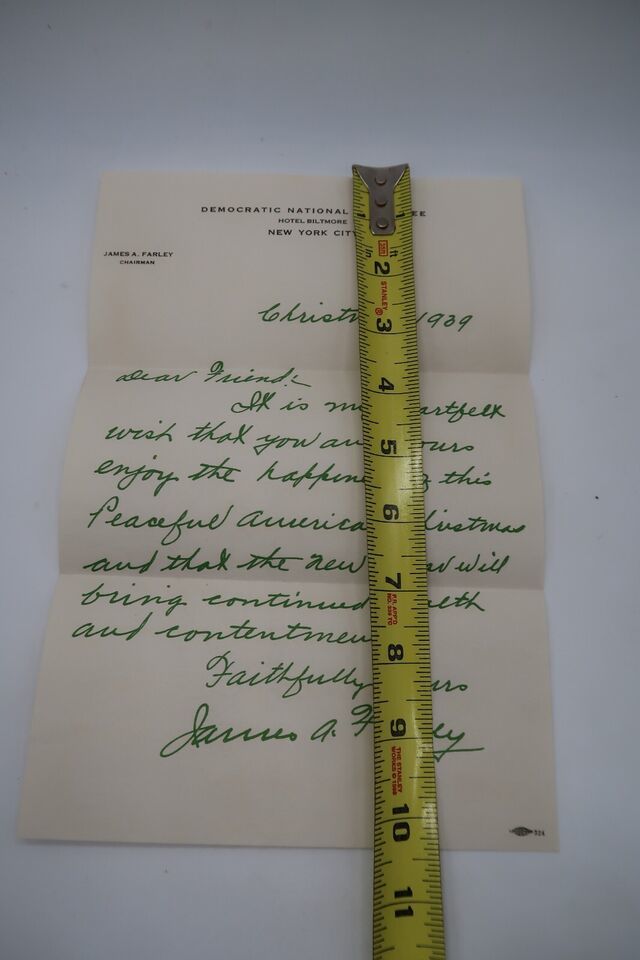 DEMOCRATIC NATIONAL EE
HOTEL BILTMORE
NEW YORK CITY
JAMES A. FARLEY
CHAIRMAN
Christm 1939
Dear Friend:
It is my artfelt
wish that you an ours
enjoy the happine this
Peaceful America ristmas
and that the new will
bring continued lth
and contentmen
Faithfully urs
James A. F ley
324
1
in ft
2
STANLEY ®
3
4
5
6
7
8
9
THE STANLEY
WORKS © 1988
10
11